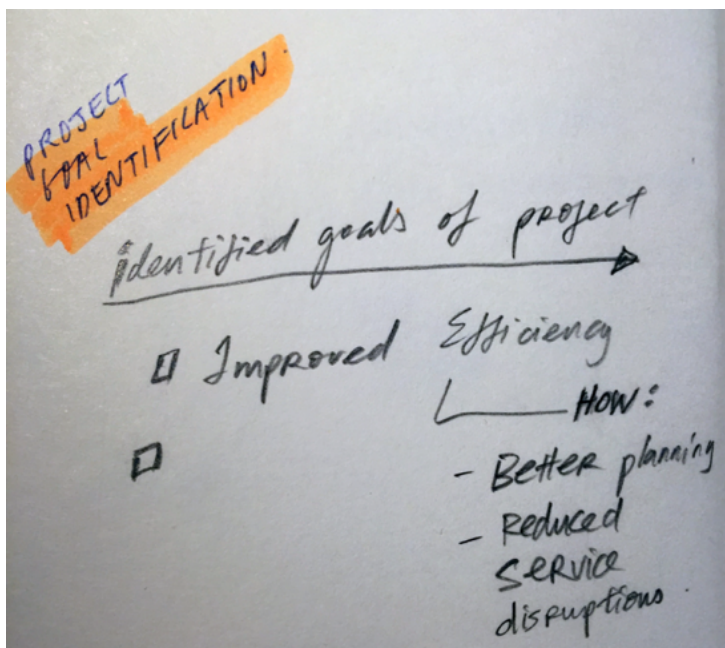 PROJECT
GOAL
IDENTIFICATION.
identified goals of project
Improved Efficiency
HOW:
- Better planning
- Reduced
service
disruptions.